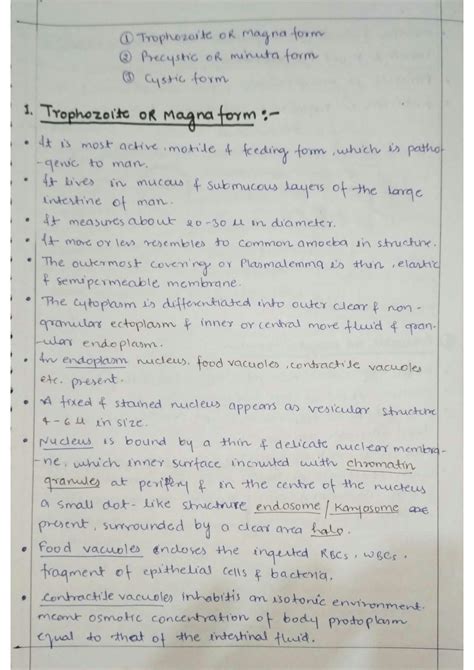 ① Trophozoite OR Magna form
② Precystic OR minuta form
③ Cystic form
1. Trophozoite OR Magna form :-
• It is most active, motile & feeding form, which is patho-
-genic to man.
• It lives in mucous & submucous layers of the large
intestine of man.
• It measures about 20-30 µ in diameter.
• It more or less resembles to common amoeba in structure.
• The outermost covering or Plasmalemma is thin, elastic
& semipermeable membrane.
• The cytoplasm is differentiated into outer clear & non-
granular ectoplasm & inner or central move fluid & gran-
-ular endoplasm.
• In endoplasm nucleus, food vacuoles, contractile vacuoles
etc. present.
• A fixed & stained nucleus appears as vesicular structure
4-6 µ in size.
• Nucleus is bound by a thin & delicate nuclear membra-
-ne, which inner surface incrusted with chromatin
granules at perifery & in the centre of the nucleus
a small dot-like structure endosome/Karyosome are
present, surrounded by a clear area halo.
• Food vacuoles encloses the ingested RBCs, WBCs,
fragment of epithelial cells & bacteria.
• Contractile vacuoles inhabitis an isotonic environment.
meant osmotic concentration of body protoplasm
equal to that of the intestinal fluid.